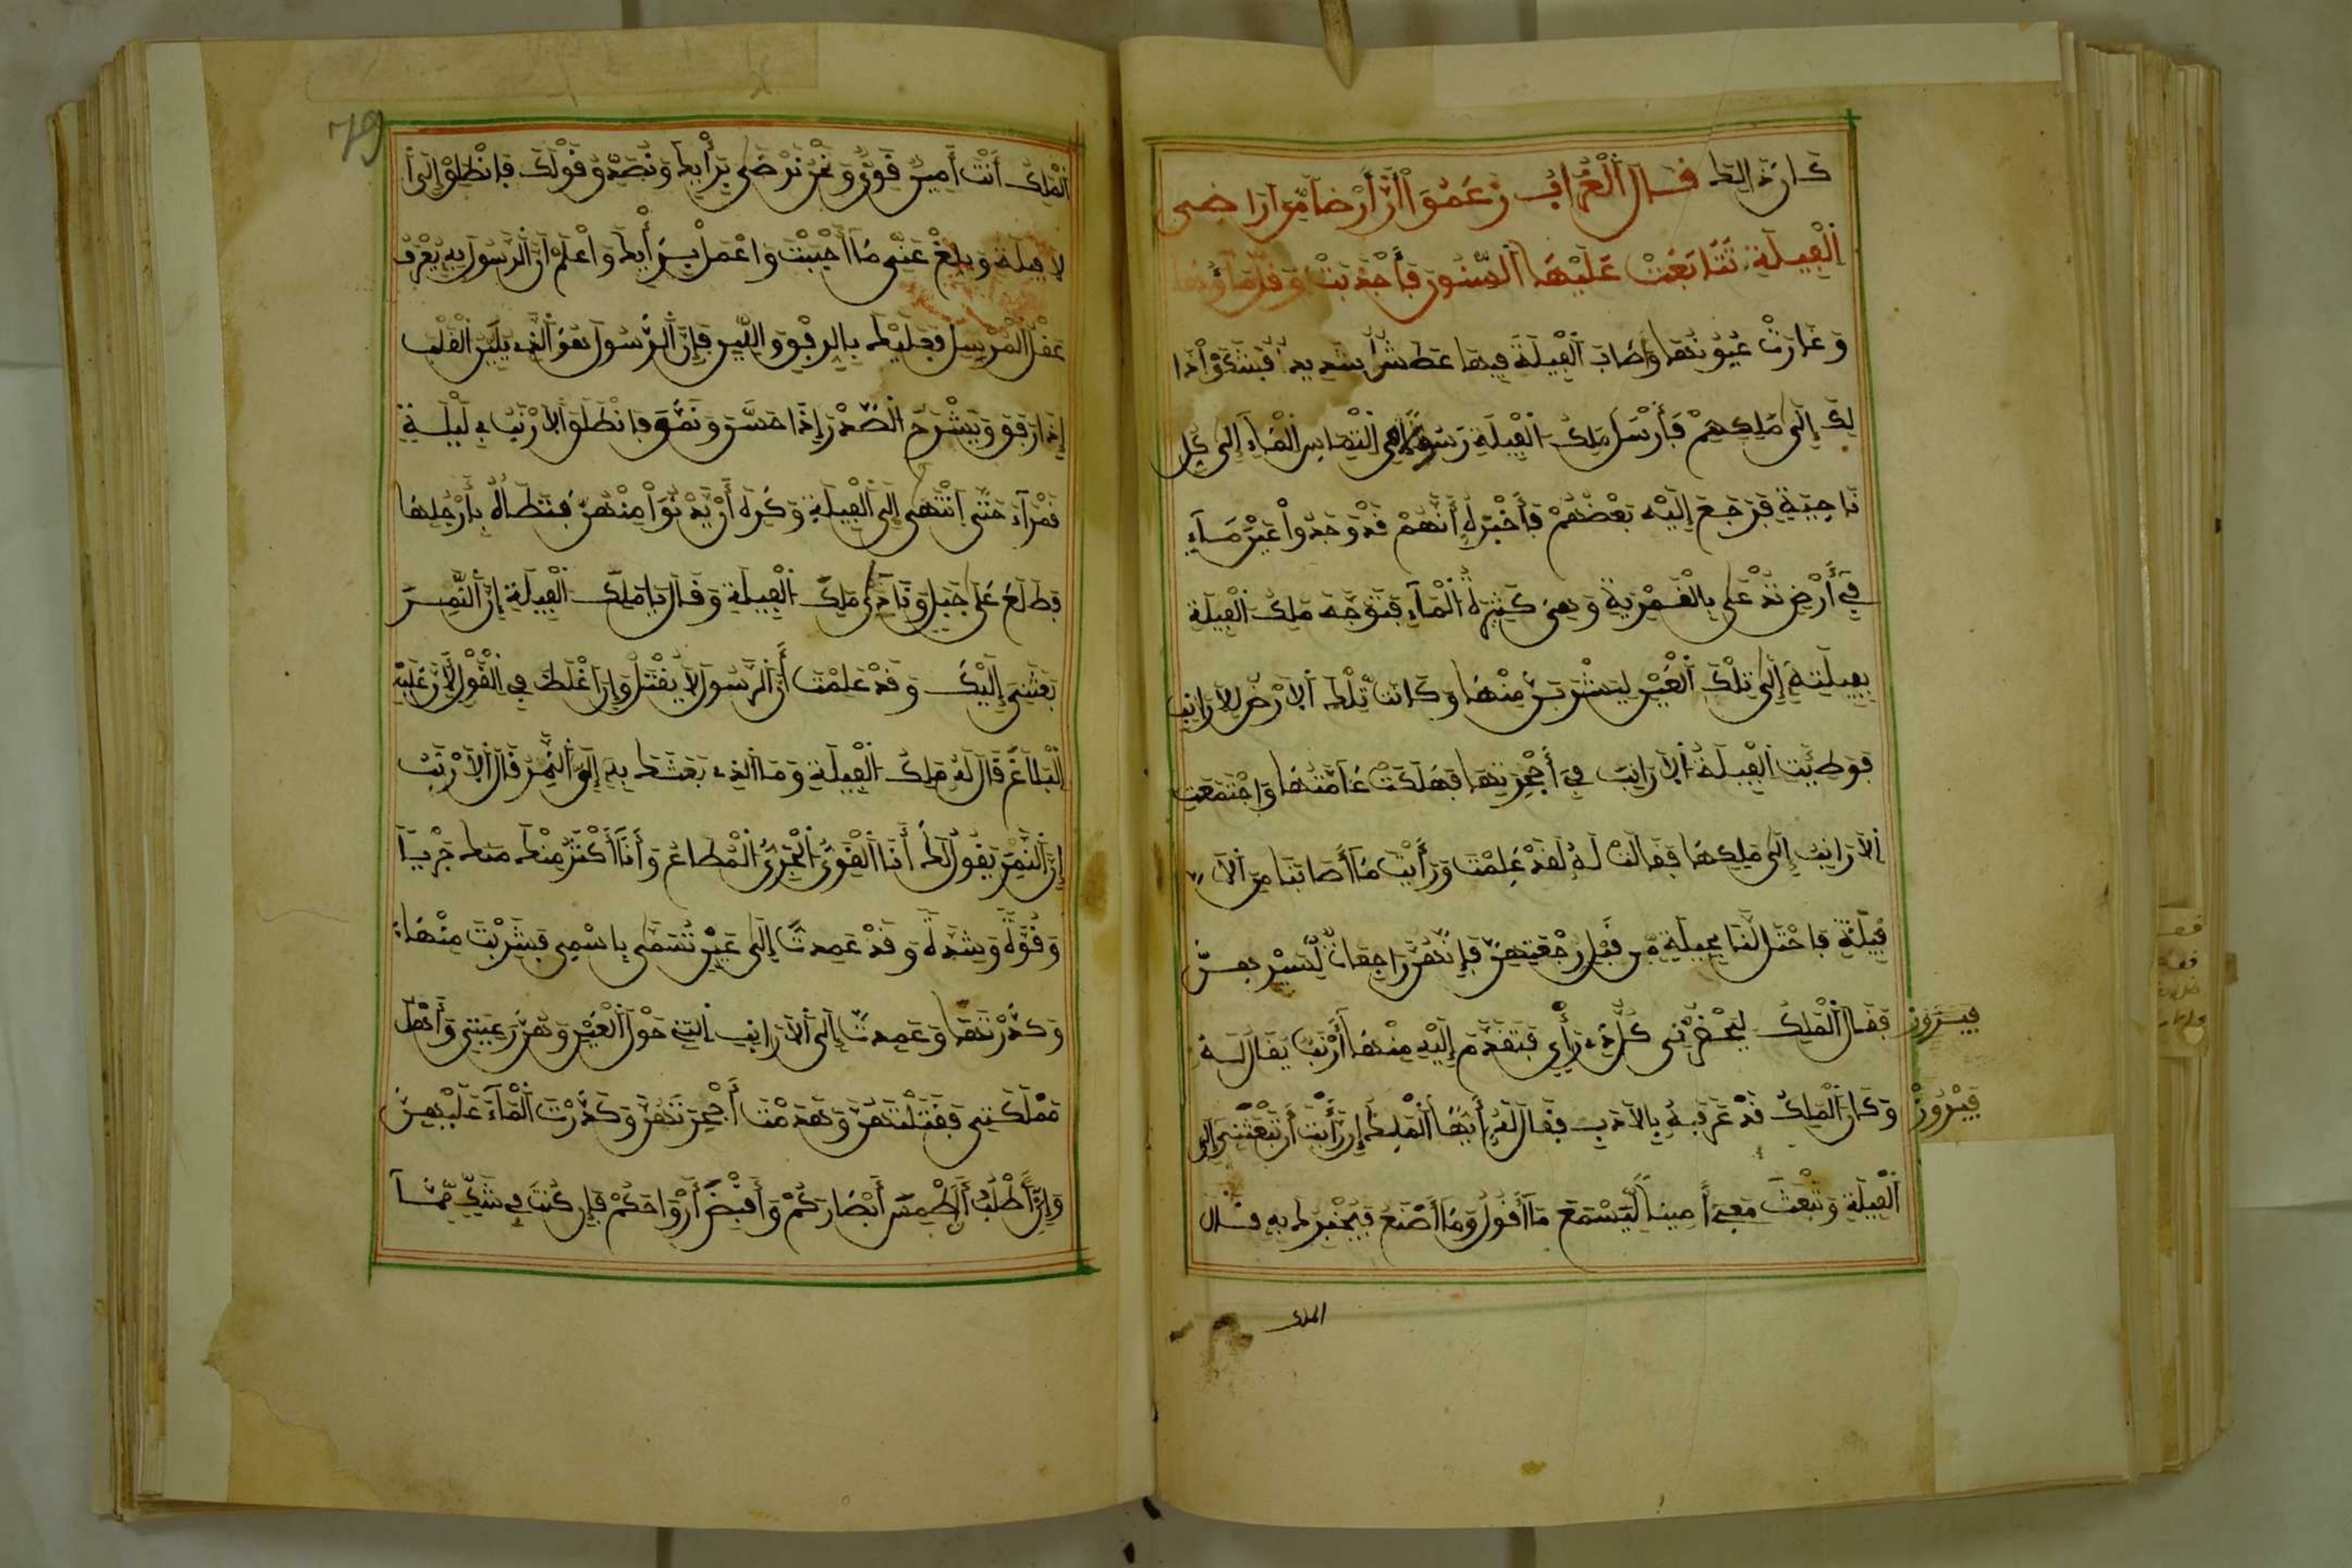 كَانَ ذَالِكَ قَالَ اَلْغُرَابُ زَعَمُوٓاْ أَنَّ أَرْضاً مِّنَ ارَاضِى
اَلْفِيلَةِ تَتَابَعَتْ عَلَيْهَا اَلسِّنُونَ فَأَجْدَبَتْ وَقَلَّ مَآؤُهَا
وَغَارَتْ عُيُونُهَا وَأَصَابَ اَلْفِيلَةَ فِيهَا عَطَشٌ شَدِيدٌ فَشَكَوْاْ ذَا
لِكَ إِلَى مَلِكِهِمْ فَأَرْسَلَ مَلِكُ اَلْفِيلَةِ رَسُولاً فِى اِلْتِمَاسِ اَلْمَآءِ إِلَى كُلِّ
نَاحِيَةٍ فَرَجَعَ إِلَيْهِ بَعْضُهُمْ فَأَخْبَرَهُ أَنَّهُمْ قَدْ وَجَدُواْ عَيْنَ مَآءٍ
فِىٓ أَرْضٍ تُدْعَى بِالْقَمَرِيَةِ وَهِىَ كَثِيرَةُ اَلْمَآءِ فَتَوَجَّهَ مَلِكُ اَلْفِيلَةِ
بِفِيلَتِهِ إِلَى تِلْكَ اَلْعَيْنِ لِيَشْرَبَنَّ مِنْهَا وَكَانَتْ تِلْكَ اَلاَرْضُ لِلاَرَانِبِ
فَوَطِئَتِ اَلْفِيلَةُ اَلاَرَانِبَ فِىٓ أَجْحِرَتِهَا فَهَلَكَتْ عَامَّتُهَا وَاجْتَمَعَتِ
اَلاَرَانِبُ إِلَى مَلِكِهَا فَقَالَتْ لَهُ لَقَدْ عَلِمْتَ وَرَأَيْتَ مَآ أَصَابَنَا مِنَ اَلا
فِيلَةِ فَاحْتَلْ لَنَا بِحِيلَةٍ مِّن قَبْلِ رَجْعَتِهِنَّ فَإِنَّهُنَّ رَاجِعَاتٌ لِّسَيْرِهِنَّ
فَقَالَ اَلْمَلِكُ لِيَحْضُرْنِى كُلُّ ذِى رَأْىٍ فَتَقَدَّمَ إِلَيْهِ مِنْهَآ أَرْنَبٌ يُقَالُ لَهُ فَيْرُوزْ
وَكَانَ اَلْمَلِكُ قَدْ عَرَفَهُ بِالاَدَبِ فَقَالَ لَهُ أَيُّهَا اَلْمَلِكُ إِن رَأَيْتَ أَن تَبْعَثَنِى إِلَى فَيْرُوزْ
اَلْفِيلَةِ وَتَبْعَثَ مَعِىَ أَمِيناً لِّيَسْمَعَ مَآ أَقُولُ وَمَآ أَصْنَعُ فَيُخْبِرَكَ بِهِ فَقَالَ
الملك
79
اَلْمَلِكُ أَنْتَ أَمِينٌ قَوِىٌّ وَنَحْنُ نَرْضَى بِرَأْيِكَ وَنُصَدِّقُ قَوْلَكَ فَانْطَلِقْ إِلَى اَ
لاَفِيلَةِ وَبَلِّغْ عَنِّى مَآ أَحْبَبْتَ وَاعْمَلْ بِرَأْيِكَ وَاعْلَمْ أَنَّ اَلرَّسُولَ بِهِ يُعْرَفُ
عَقْلُ اَلْمُرْسِلِ فَعَلَيْكَ بِالرِّفْقِ وَاللِّينِ فَإِنَّ اَلرَّسُولَ هُوَ اَلَّذِى يُلَيِّنُ اَلْقَلْبَ
إِذَا رَفَقَ وَيَشْرَحُ اَلصَّدْرَ إِذَا حَسَّنَ وَنَمَّقَ فَانْطَلَقَ اَلاَرْنَبُ فِى لَيْلَةٍ
قَمْرَآءَ حَتَّى اَنْتَهَى إِلَى اَلْفِيلَةِ وَكَرِهَ أَنْ يَّدْنُوَاْ مِنْهُنَّ فَتَطَأَهُ بِأَرْجُلِهَا
فَطَلَعَ عَلَى جَبَلٍ وَنَادَى مَلِكَ اَلْفِيلَةِ وَقَالَ يَا مَلِكَ اَلْفِيلَةِ إِنَّ اَلنَّمِرَ
بَعَثَنِىٓ إِلَيْكَ وَقَدْ عَلِمْتَ أَنَّ اَلرَّسُولَ لاَ يُقْتَلُ وَإِنَ اَغْلَظَ فِى اِلْقَوْلِ لأَنَّ عَلَيْهِ
اَلْبَلاَغَ قَالَ لَهُ مَلِكُ اَلْفِيلَةِ وَمَا اَلَّذِى بَعَثَكَ بِهِ إِلَىَّ اَلنَّمِرُ قَالَ اَلاَرْنَبُ
إِنَّ اَلنَّمِرَ يَقُولُ لَكَ أَنَا اَلْقَوِىُّ اَلْجَرِىُّ اَلْمُطَاعُ وَأَنَآ أَكْثَرُ مِنْكَ جَرْياً
وَقُوَّةً وَشِدَّةً وَقَدْ عَمِدتَّ إِلَى عَيْنٍ تُسَمَّى بِاسْمِى فَشَرِبْتَ مِنْهَا
وَكَدَّرْتَهَا وَعَمِدتَّ إِلَى اَلاَرَانِبِ اَلَّتِى حَوْلَ اَلْعَيْنِ وَهُنَّ رَعِيَّتِى وَأَهْلُ
مَمْلَكَتِى فَقَتَلْتَهُنَّ وَهَدَمْتَ أَجْحِرَتَهُنَّ وَكَدَّرْتَ اَلْمَآءَ عَلَيْهِنَّ
وَإِنِّىٓ أَطْلُبُ أَن أَطْمِسَ أَبْصَارَكُمْ وَأَقْبِضَ أَرْوَاحَكُمْ فَإِن كُنْتَ فِى شَكٍّ مِّمَّآ